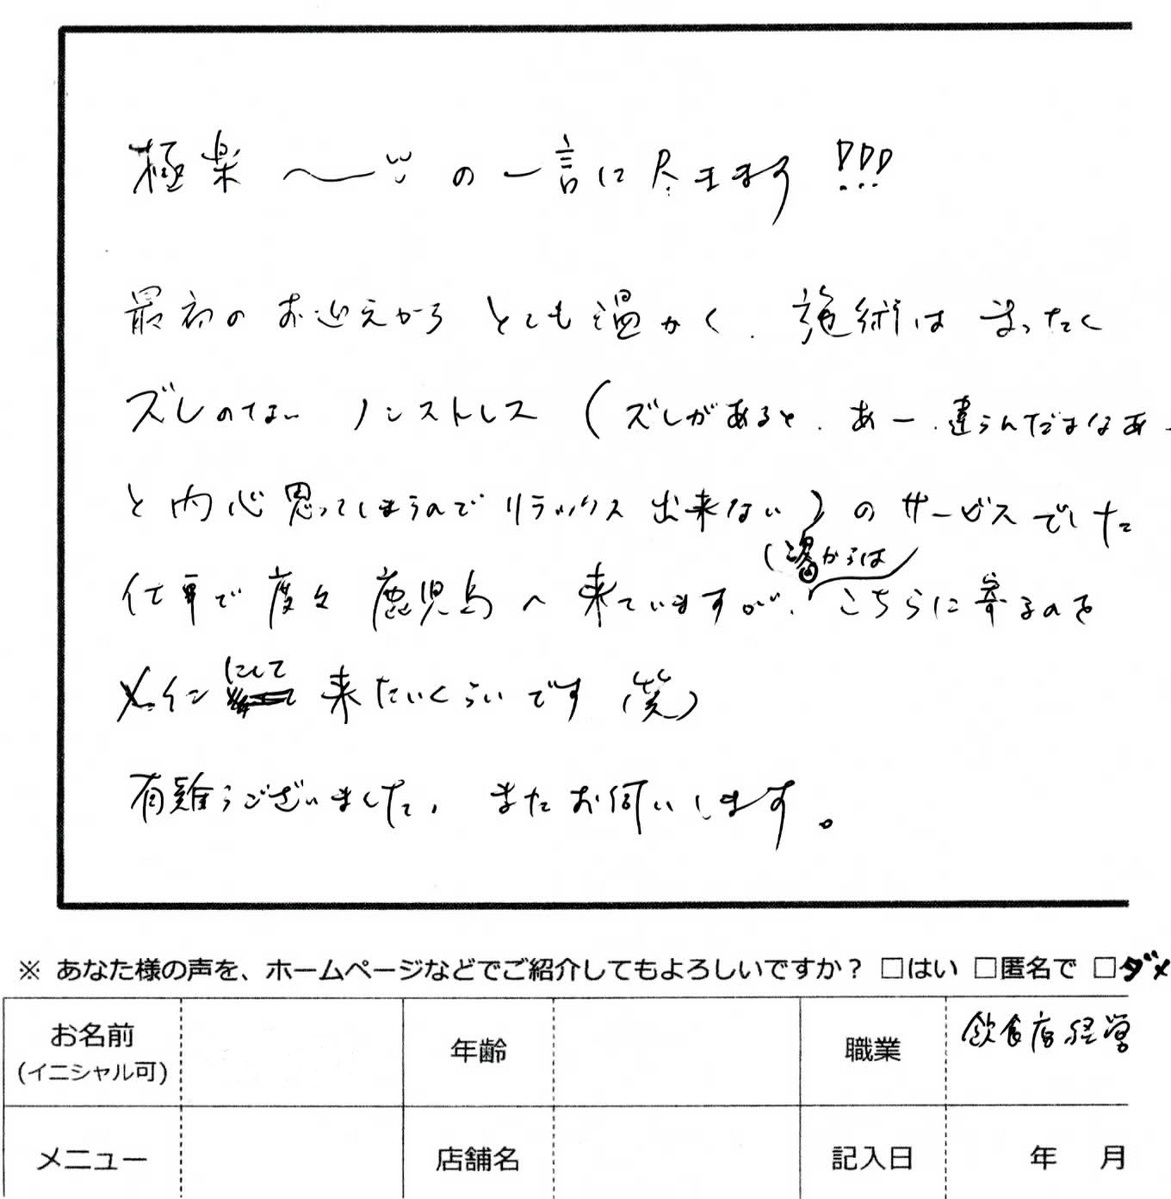 極楽〜の一言に尽きます!!!
最初のお迎えからとても温かく、施術はまったく
ズレのないノンストレス(ズレがあると、あー、違うんだよなあー
と内心思ってしまうのでリラックス出来ない)のサービスでした
(次回からは)
仕事で度々鹿児島へ来ていますが、こちらに寄るのを
メインにして来たいくらいです(笑)
有難うございました。またお伺いします。
※ あなた様の声を、ホームページなどでご紹介してもよろしいですか? □はい □匿名で □ダメ
お名前 年齢 職業 飲食店経営
(イニシャル可)
メニュー 店舗名 記入日 年 月